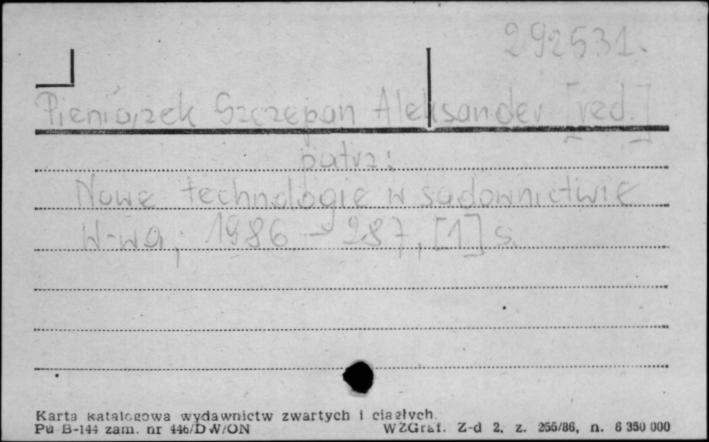 292531.
Pieniążek Szczepan Aleksander [red.]
patrz:
Nowe technologie w sadownictwie
W-wa, 1986 - 287, [1] s.
Karta katalogowa wydawnictw zwartych i ciągłych.
Pu B-144 zam. nr 446/DW/ON WZGraf. Z-d 2, z. 255/86, n. 6 350 000